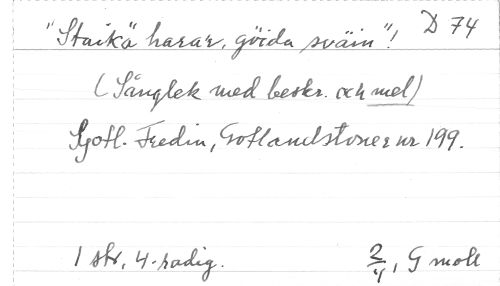 "Staikä harar, göida sväin"! D 74
(Sånglek med beskr. och mel)
Gotl. Fredin, Gotlandstoner nr 199.
1 str, 4-radig. 2/4, G moll